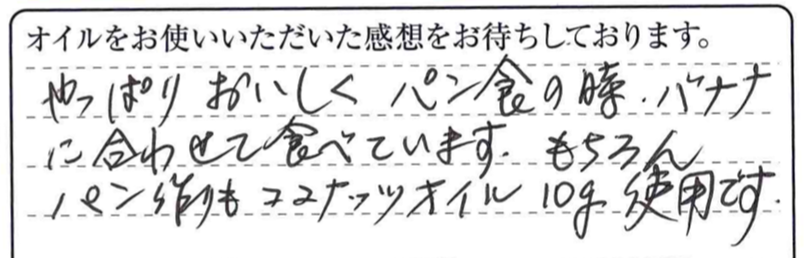 オイルをお使いいただいた感想をお待ちしております。
やっぱりおいしく パン食の時、バナナ
に合わせて食べています。もちろん
パン作りも ココナッツオイル 10g 使用です。